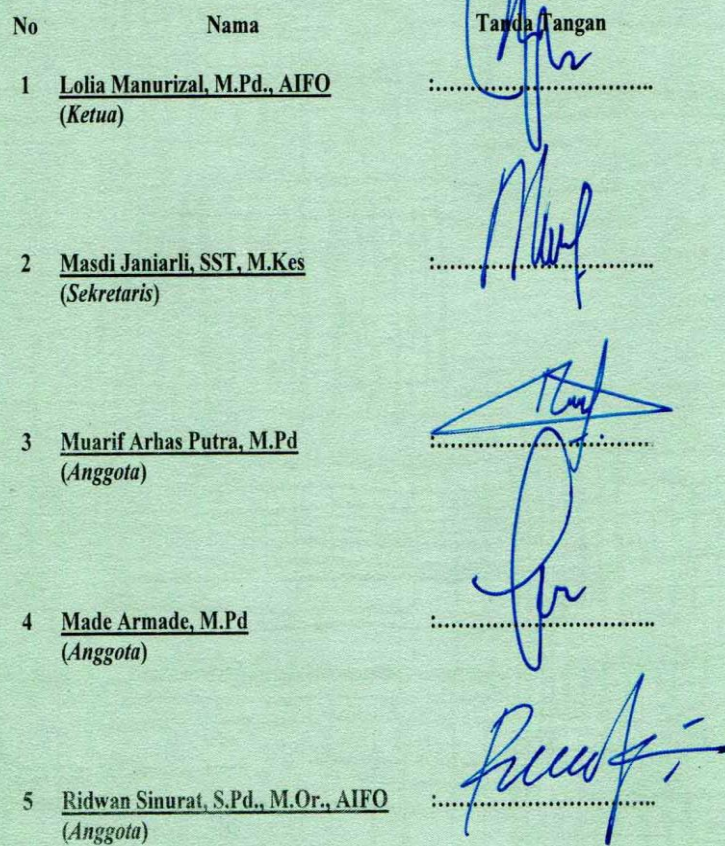 No Nama Tanda Tangan
1 Lolia Manurizal, M.Pd., AIFO :..............................
(Ketua)
2 Masdi Janiarli, SST, M.Kes :..............................
(Sekretaris)
3 Muarif Arhas Putra, M.Pd :..............................
(Anggota)
4 Made Armade, M.Pd :..............................
(Anggota)
5 Ridwan Sinurat, S.Pd., M.Or., AIFO :..............................
(Anggota)